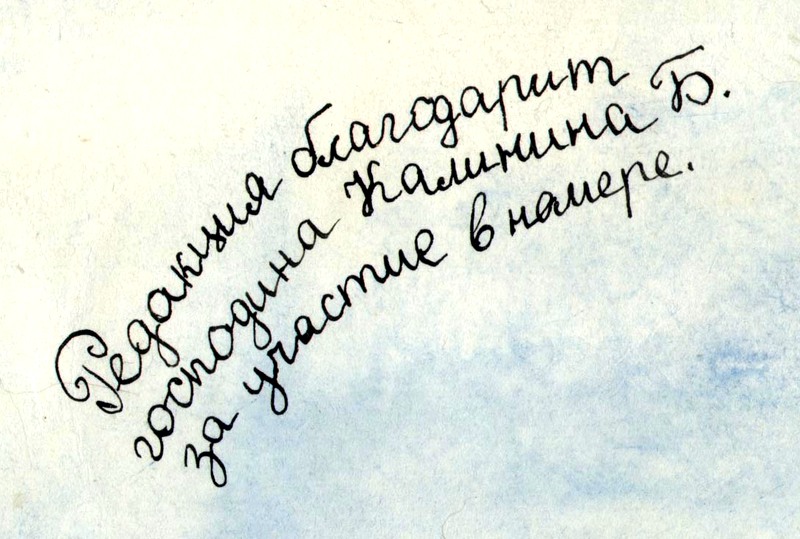 Редакция благодарит
господина Калинина Б.
за участие в номере.